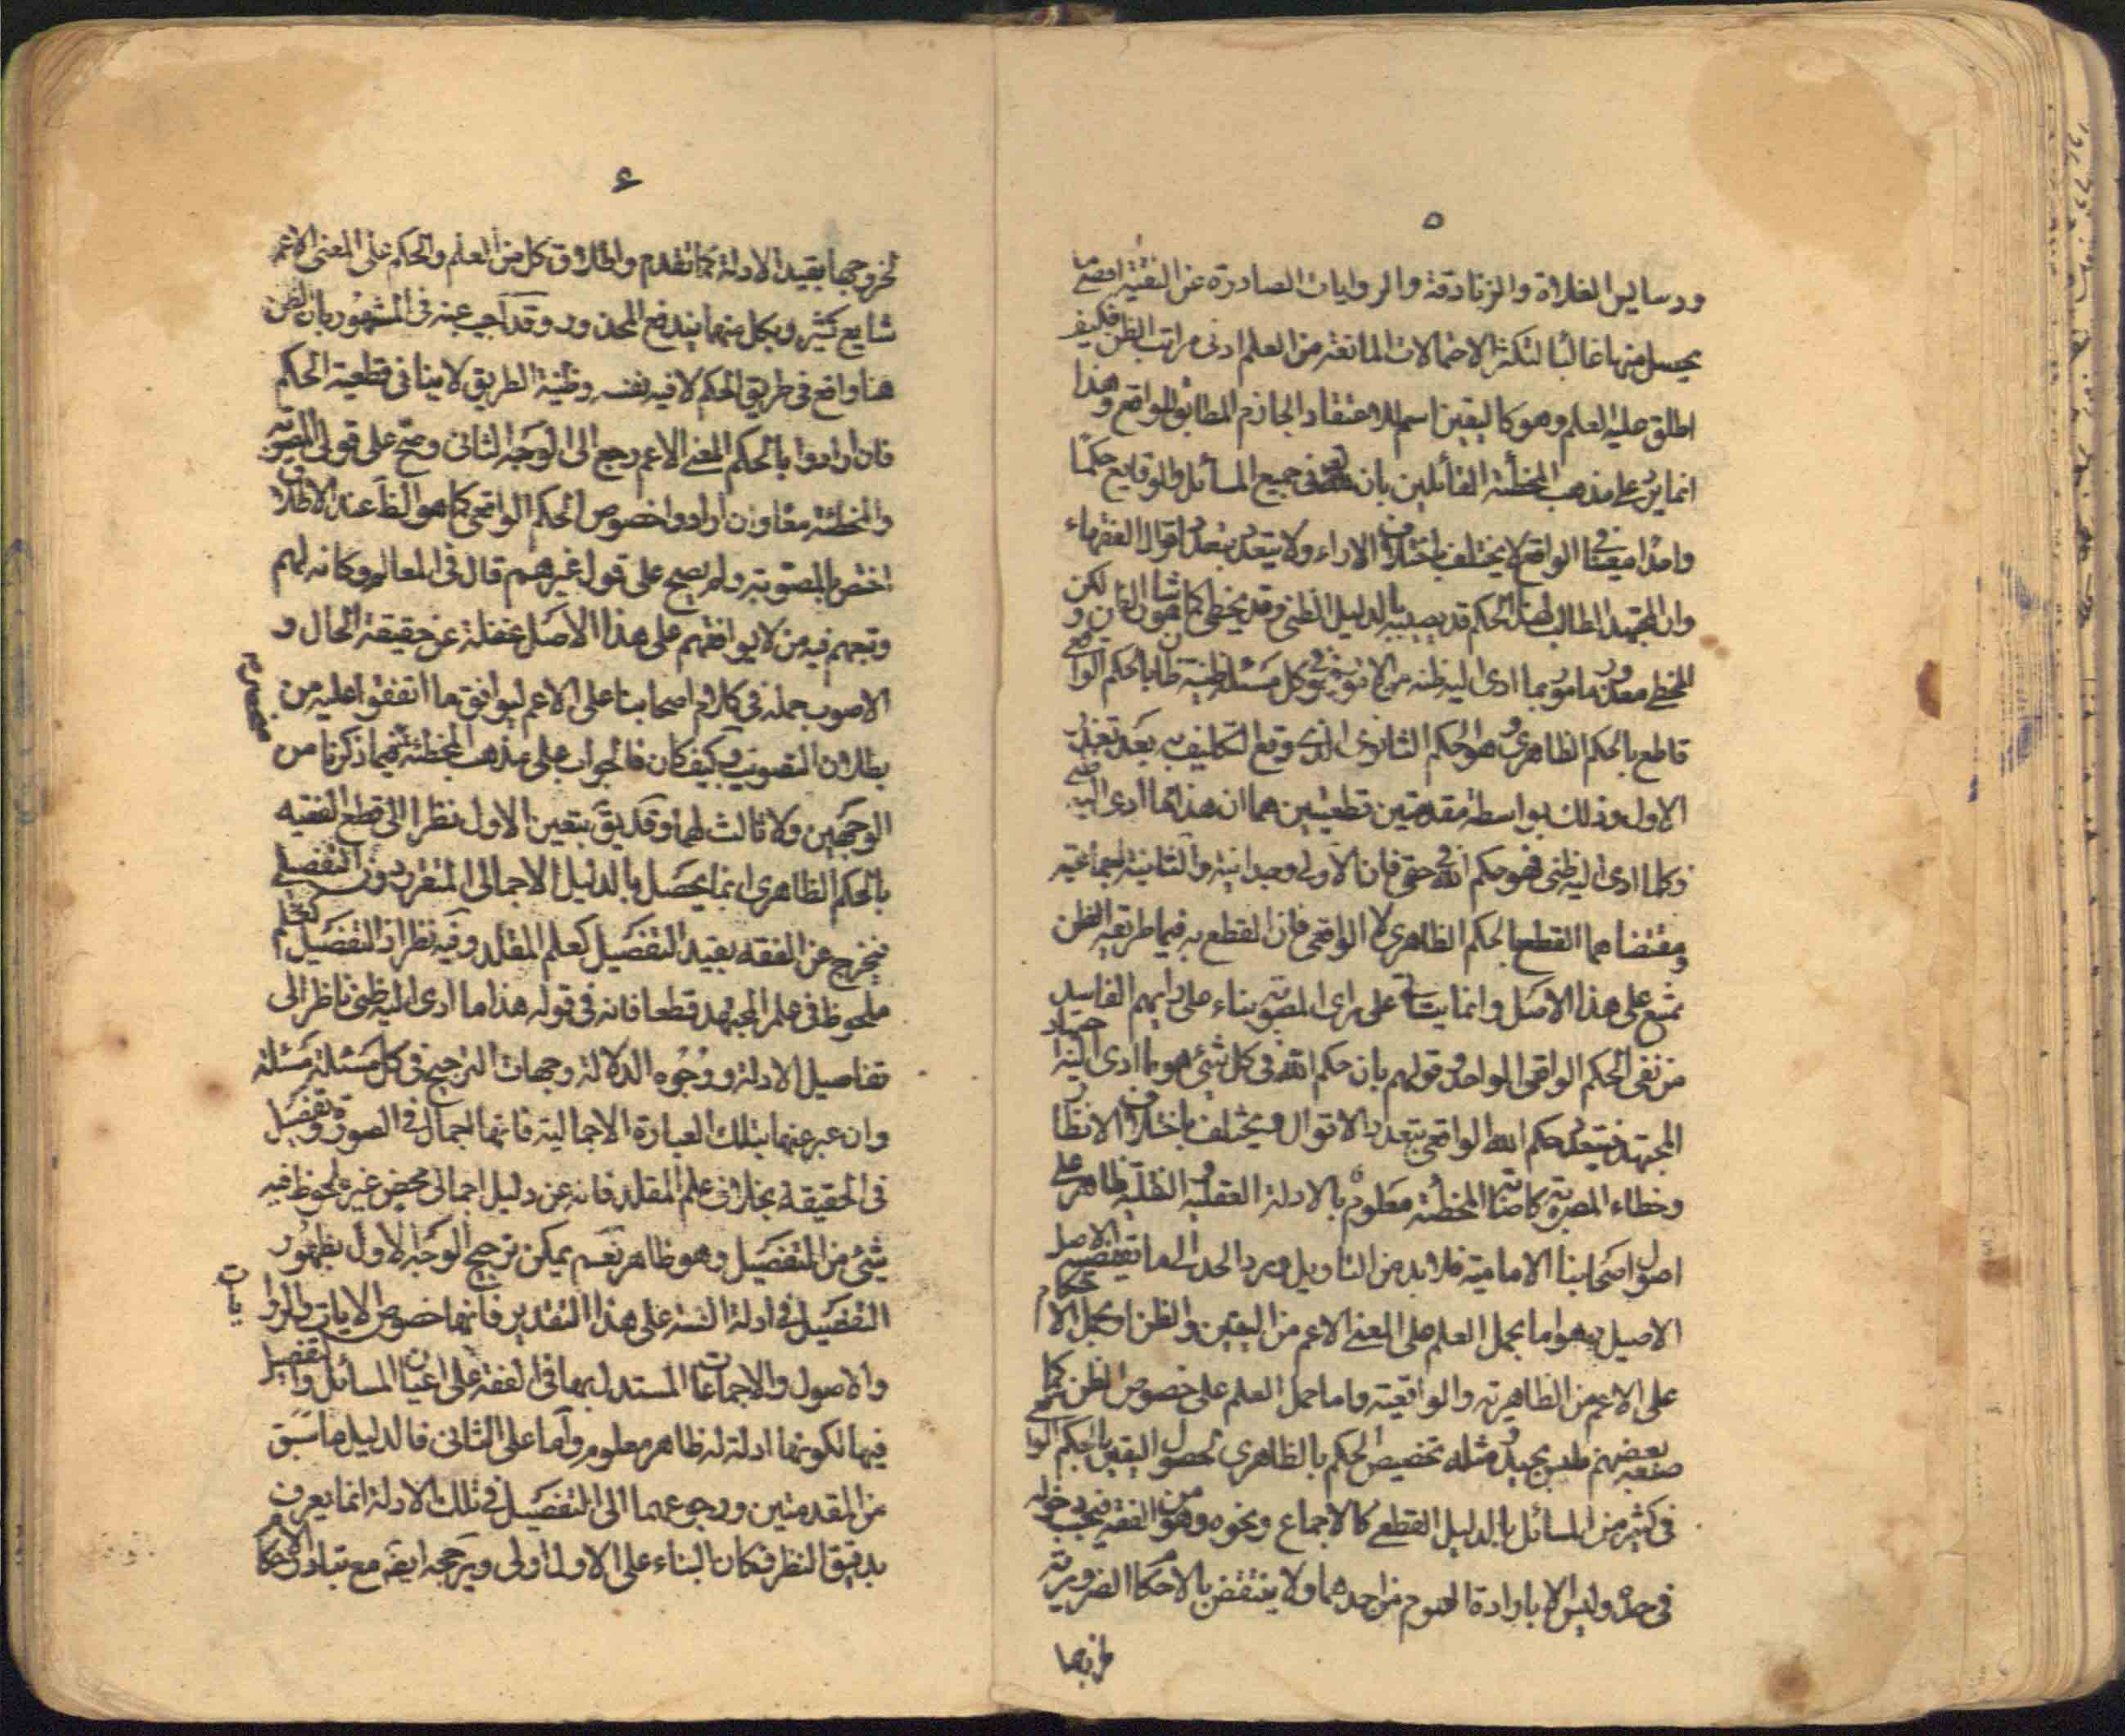 ٥
ودساليس الغلاة والزنادقة والروايات الصادرة عن التقية افصح ما
يحصل منها غالبا لتكثر الاحتمالات المانعة من العلم ادنى مراتب الظن فكيف
اطلق عليه العلم وهو كاليقين اسم للاعتقاد الجازم المطابق للواقع وهذا
انما يرد على مذهب المخطئة القائلين بان لله في جميع المسائل والوقايع حكما
واحدا معينا في الواقع لا يختلف باختلاف الاراء ولا يتعدد بتعدد اقوال الفقهاء
وان المجتهد الطالب لهذا الحكم قد يصيبه بالدليل الظني وقد يخطى كما هو شان الظن لكن
المخطي معذور مامور بما ادى اليه ظنه من الاخذ فهو في كل مسئلة ظنية ظان بالحكم الواقعي و
قاطع بالحكم الظاهري وهو الحكم الثانوي الذي وقع التكليف به بعد تعذر
الاول وذلك بواسطة مقدمتين قطعيتين هما ان هذا ما ادى اليه ظني
وكلما ادى اليه ظني فهو حكم الله في حقي فان الاولى وجدانية والثانية اجماعية
ومقتضاهما القطع بالحكم الظاهري لا الواقعي فان القطع به فيما طريقه الظن
يمتنع على هذا الاصل وانما يتأتى على راى المصوبة بناء على رايهم الفاسد
من نفى الحكم الواقعي الواحد وقولهم بان حكم الله في كل شئ هو ما ادى اليه اجتهاد
المجتهد فيتعدد حكم الله الواقعي بتعدد الاقوال ويختلف باختلاف الانظار
وخطاء المصوبة كاصابة المخطئة معلوم بالادلة العقلية والنقلية ظاهر على
اصول اصحابنا الامامية فلا بد من التاويل ويرد الحد الى ما يقتضيه الاصل
الاصيل وهو اما بحمل العلم على المعنى الاعم من اليقين والظن او بحمل الاحكام
على الاعم من الظاهرية والواقعية واما حمل العلم على خصوص الظن كما
صنعه بعضهم فليس بجيد ومثله تخصيص الحكم بالظاهري لحصول اليقين بالحكم الواقعي
في كثير من المسائل بالدليل القطعي كالاجماع ونحوه وهو من الفقه فيجب دخوله
في حده وليس الا بارادة العموم من احدهما ولا ينتقض بالاحكام الضرورية
لخروجها
٤
لخروجها بقيد الادلة كما تقدم واطلاق كل من العلم والحكم على المعنى الاعم
شايع كثير وبكل منهما يندفع المحذور وقد اجيب عنه في المشهور بان الظن
هنا واقع في طريق الحكم لا فيه نفسه وظنية الطريق لا ينافى قطعية الحكم
فان ارادوا بالحكم المعنى الاعم رجع الى الوجه الثاني وصح على قولى المصوبة
والمخطئة معا وان ارادوا خصوص الحكم الواقعي كما هو الظ عند الاطلاق
اختص بالمصوبة ولم يصح على قول غيرهم قال في المعالم وكانه لهم
وتبعهم فيه من لا يوافقهم على هذا الاصل غفلة عن حقيقة الحال و
الاصوب حمله في كلام اصحابنا على الاعم ليوافق ما اتفقوا عليه من
بطلان التصويب وكيف كان فالجواب على مذهب المخطئة فيما ذكرنا من
الوجهين ولا ثالث لهما وقد يق بتعين الاول نظرا الى قطع الفقيه
بالحكم الظاهري انما يحصل بالدليل الاجمالى المتفرد دون التفصيل
فيخرج عن الفقه بقيد التفصيل كعلم المقلد وفيه نظر اذ التفصيل
ملحوظ في علم المجتهد قطعا فانه في قوله هذا ما ادى اليه ظني ناظر الى
تفاصيل الادلة ووجوه الدلالة وجهات الترجيح في كل مسئلة مسئلة
وان عبر عنها بتلك العبارة الاجمالية فانها اجمال في الصورة وتفصيل
في الحقيقة بخلاف علم المقلد فانه عن دليل اجمالى محض غير ملحوظ فيه
شئ من التفصيل وهو ظاهر نعم يمكن ترجيح الوجه الاول بظهور
التفصيل في ادلة الفقه على هذا التقدير فانها خصوص الايات والروايات
والاصول والاجماعات المستدل بها في الفقه على اعيان المسائل والتفصيل
فيها لكونها ادلة له ظاهر معلوم واما على الثاني فالدليل ما سبق
من المقدمتين ورجوعهما الى التفصيل في تلك الادلة انما يعرف
بدقيق النظر فكان البناء على الاول اولى ويرجحه ايض مع تبادل الاحكام